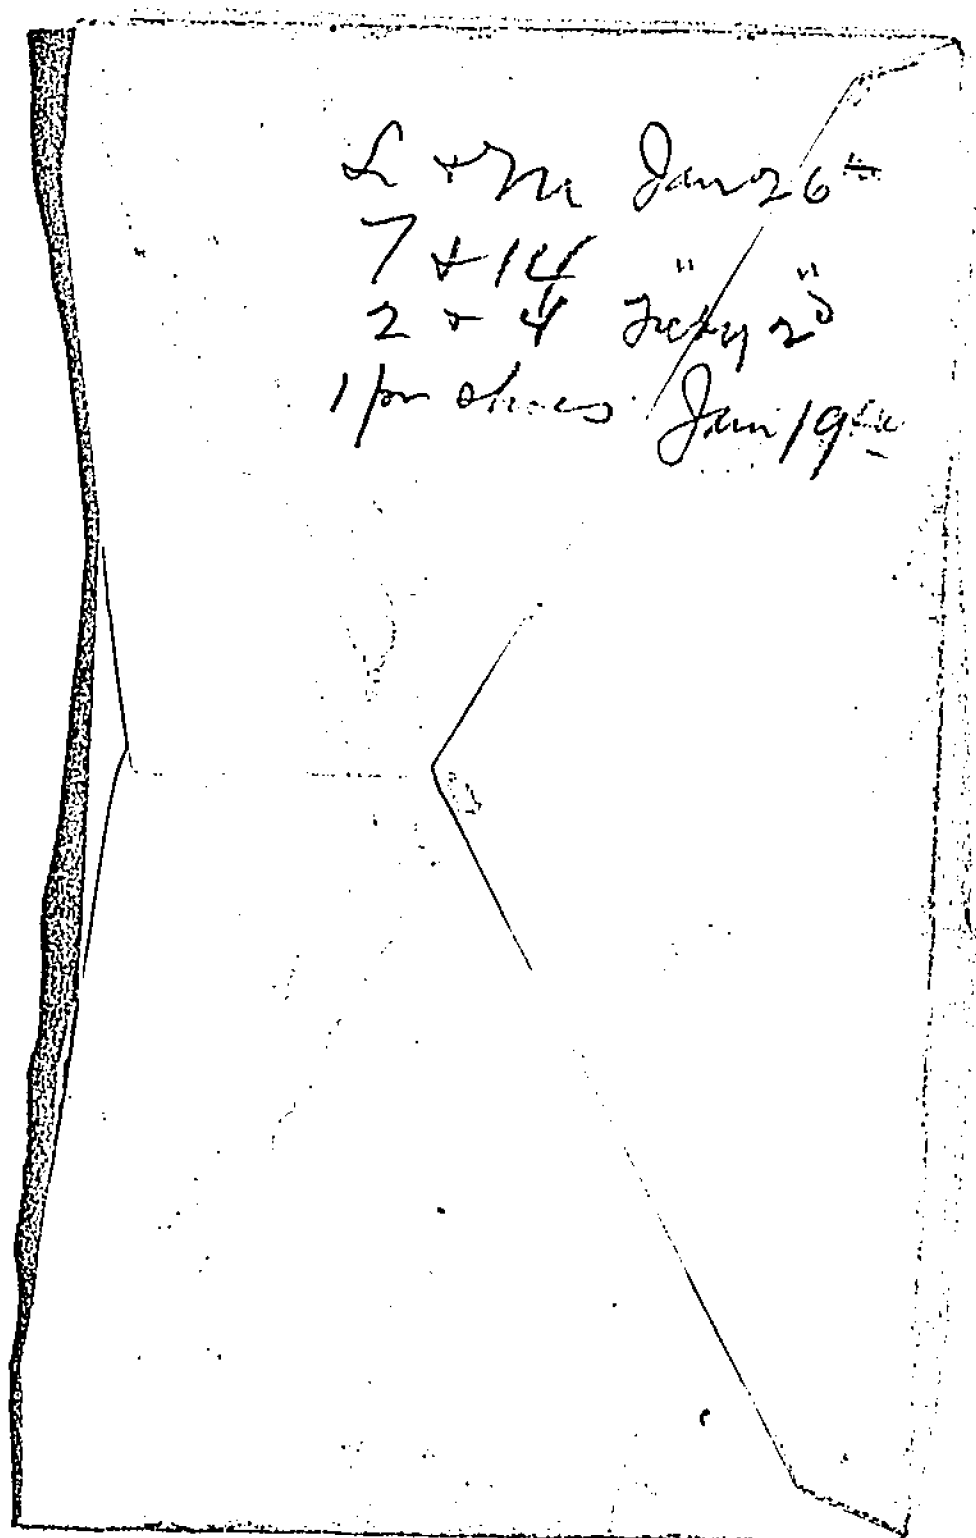 L + M Jan 26th
7 + 14 " "
2 + 4 Feby 2d
1 pr shoes Jan 19th